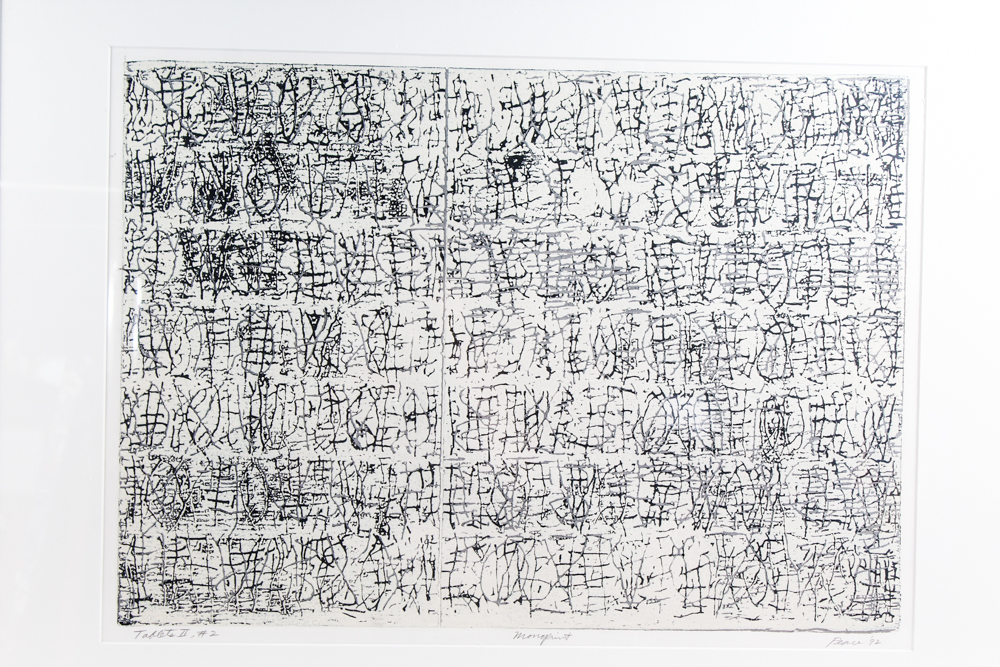 Tablets II, #2
Monoprint
'92